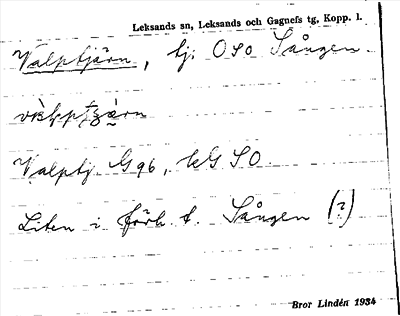 Leksands sn, Leksands och Gagnefs tg, Kopp. l.
Valptjärn, tj. OSO Sången.
Valptj. G96, kG SO.
Liten i förh. t. Sången (?)
Bror Lindén 1934